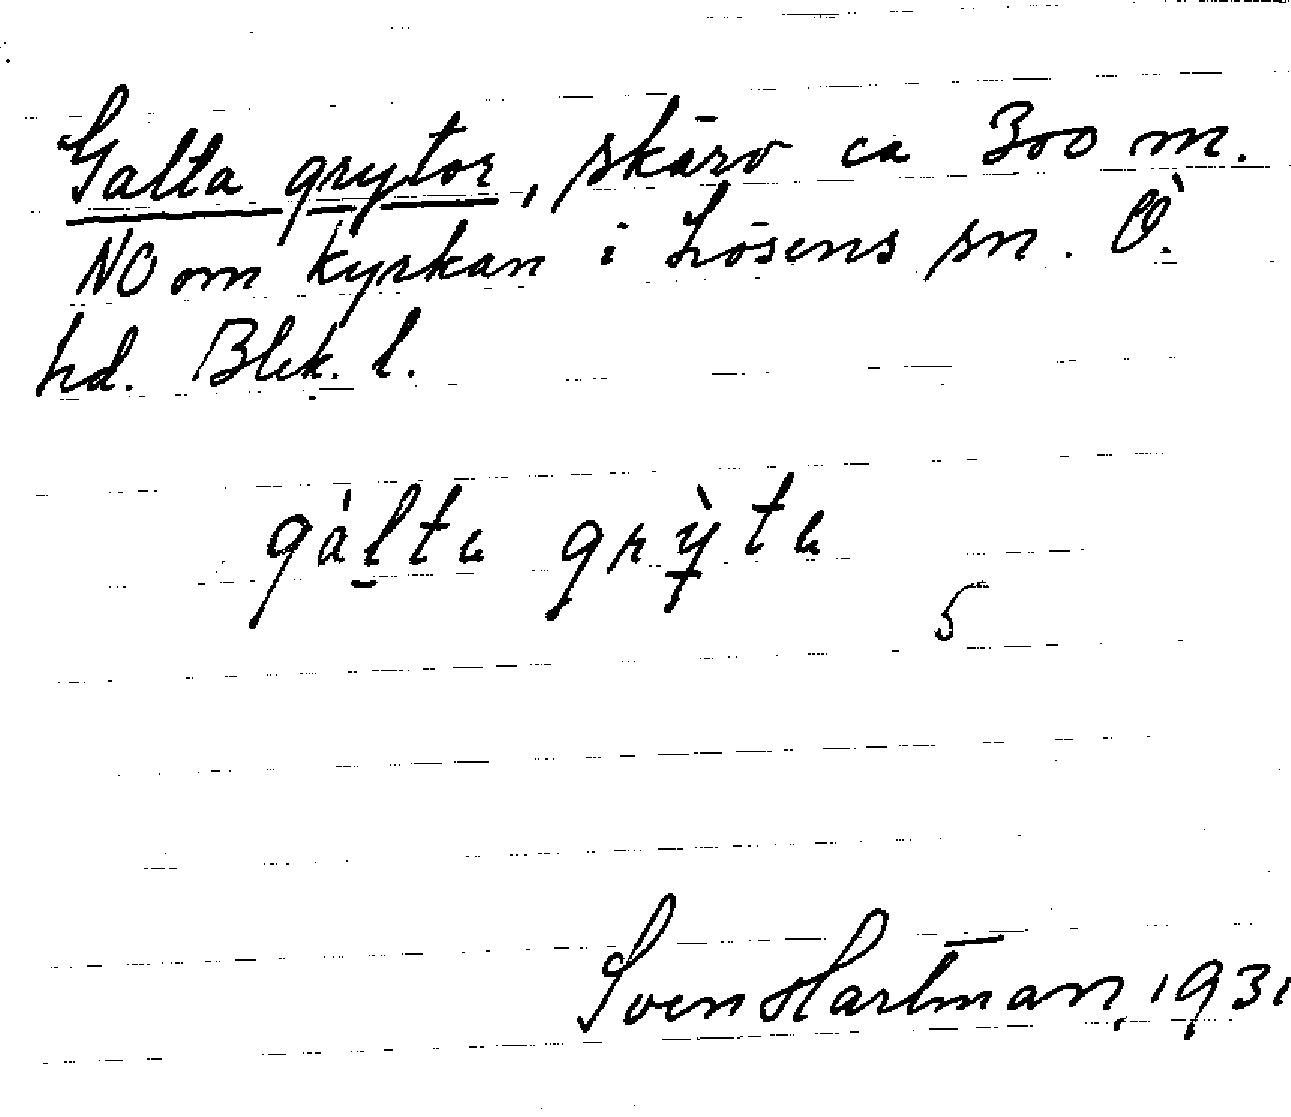 Galta grytor, skärv ca 300 m.
NO om kyrkan i Lösens sn. Ö.
hd. Blek. l.
gálta grỳta
5
Sven Hartman, 1931